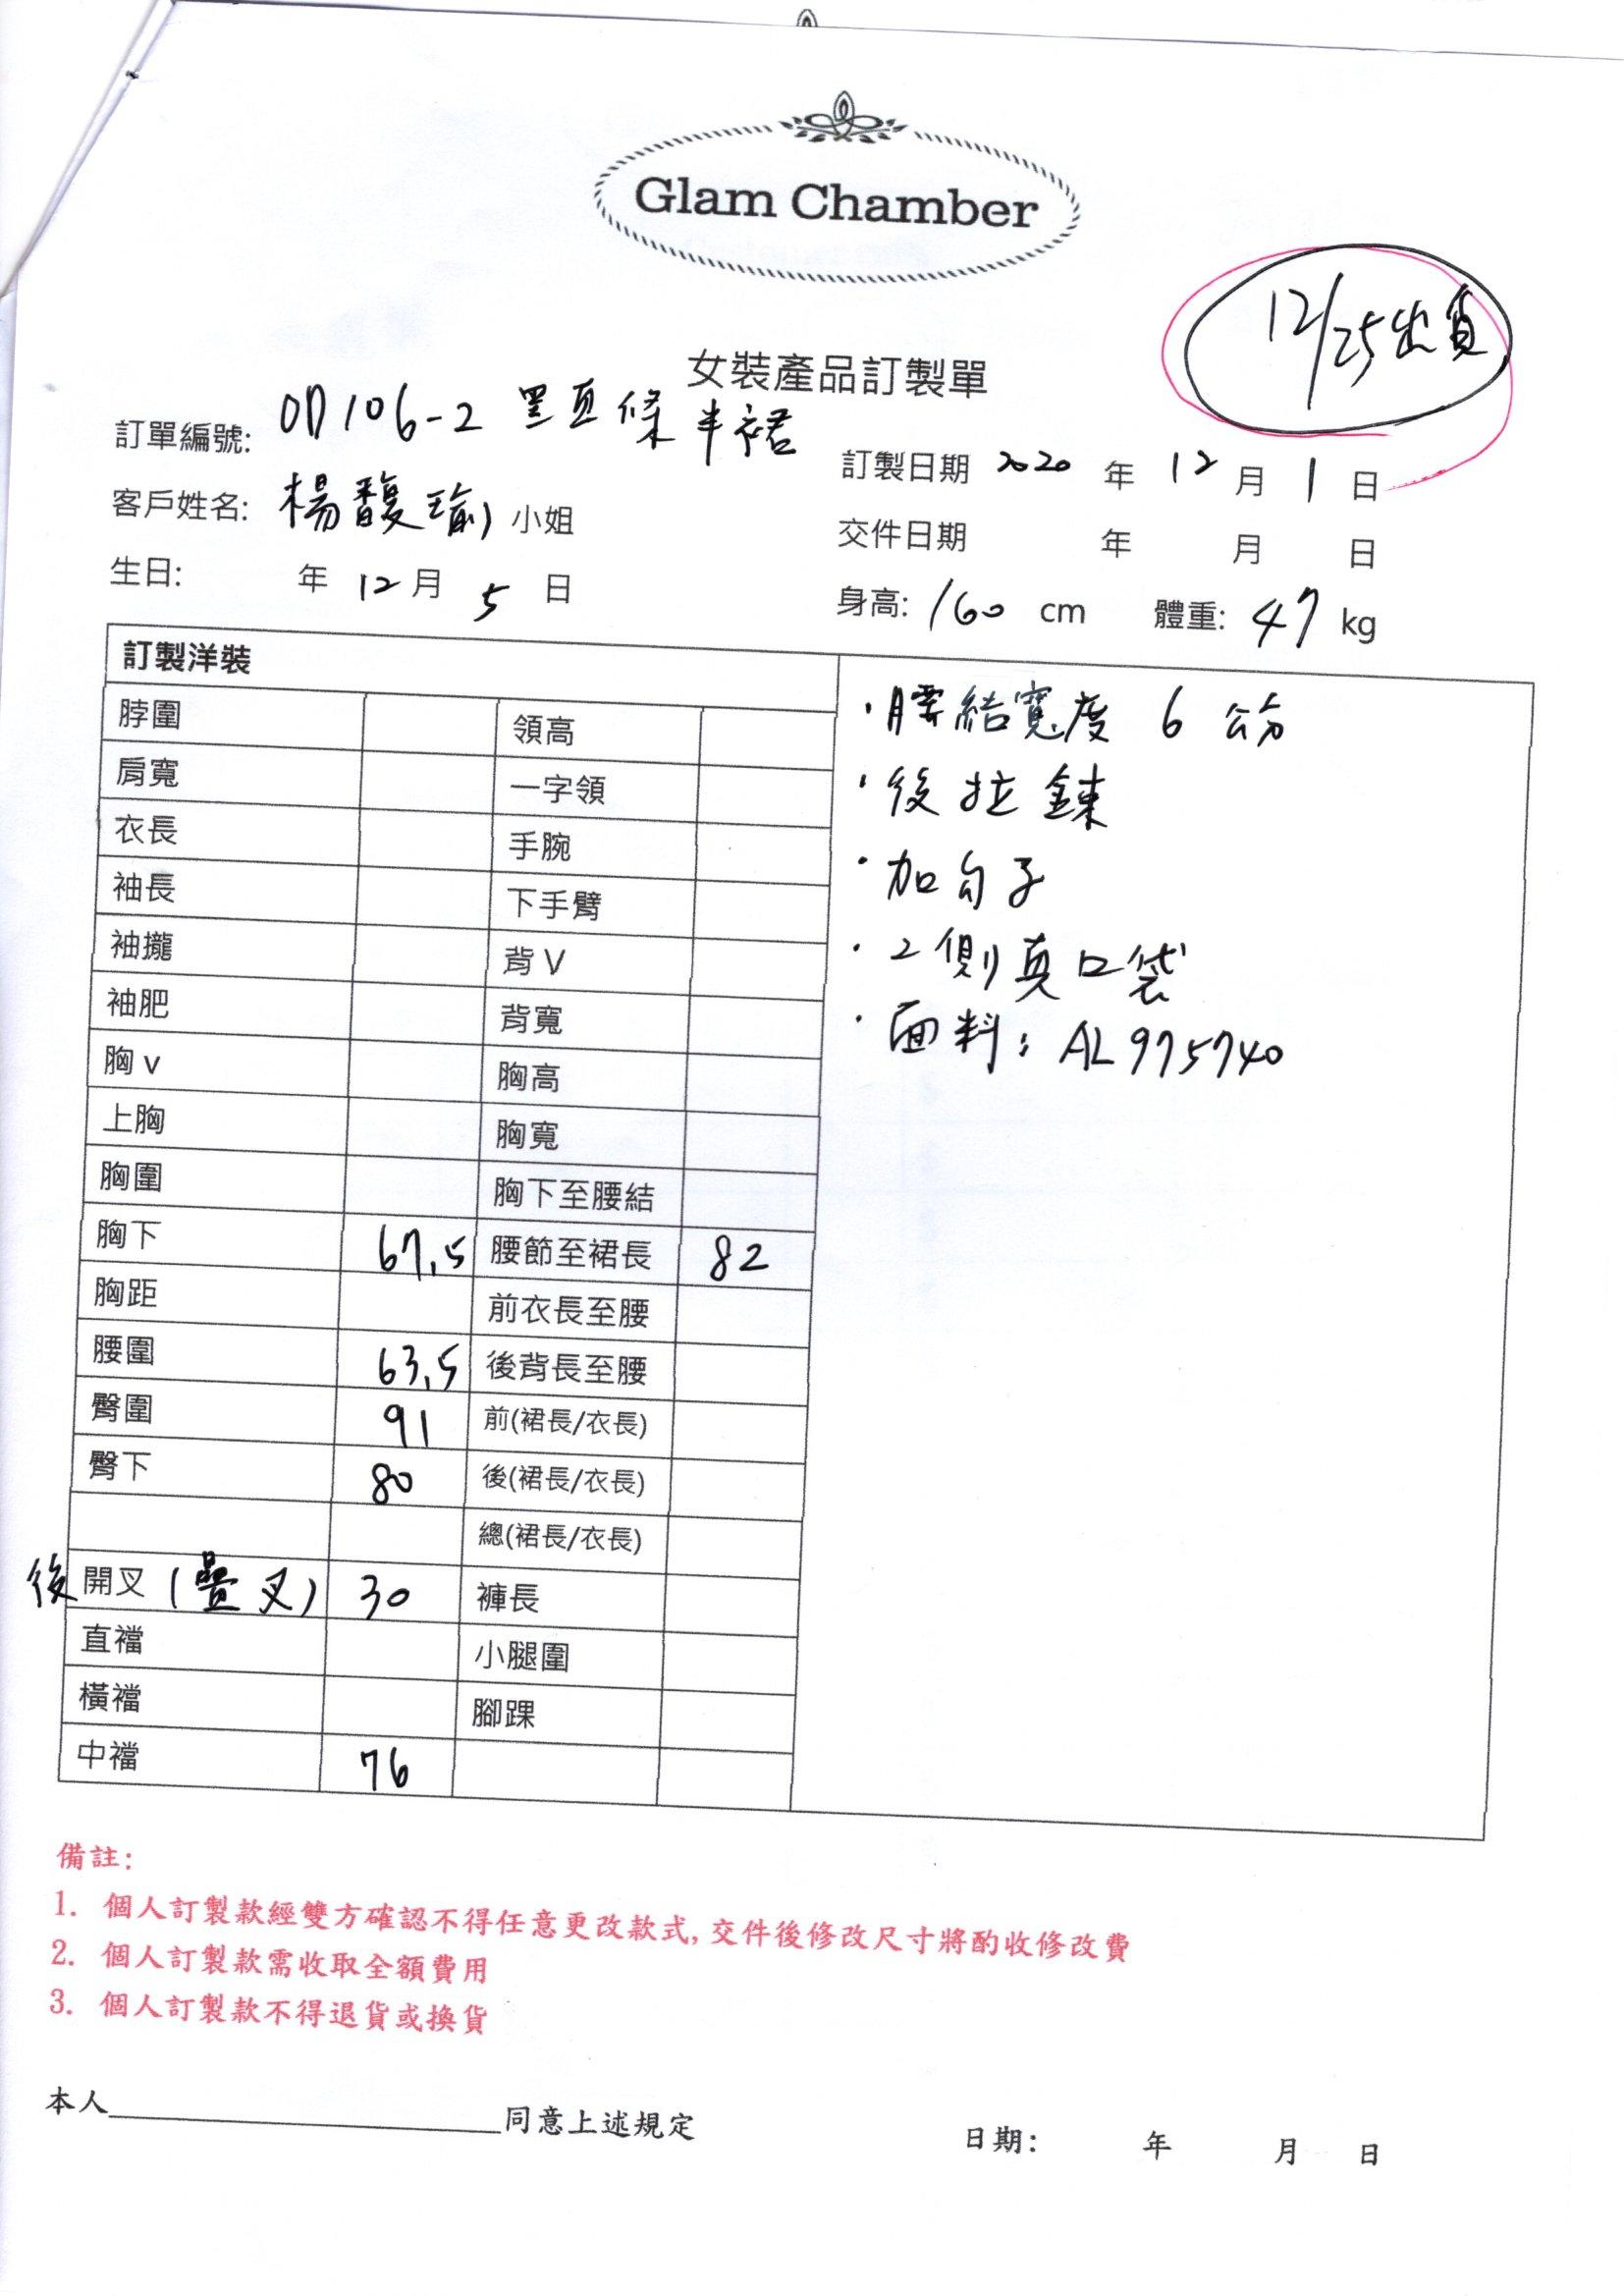 Glam Chamber
12/25出貨
女裝產品訂製單
訂單編號: OD106-2 黑直條半裙
訂製日期 2020 年 12 月 1 日
客戶姓名: 楊馥瑜 小姐
交件日期 年 月 日
生日: 年 12 月 5 日
身高: 160 cm 體重: 47 kg
訂製洋裝
脖圍 領高
肩寬 一字領
衣長 手腕
袖長 下手臂
袖攏 背V
袖肥 背寬
胸v 胸高
上胸 胸寬
胸圍 胸下至腰結
胸下 67.5 腰節至裙長 82
胸距 前衣長至腰
腰圍 63.5 後背長至腰
臀圍 91 前(裙長/衣長)
臀下 80 後(裙長/衣長)
總(裙長/衣長)
後開叉(疊叉) 30 褲長
直襠 小腿圍
橫襠 腳踝
中襠 76
·腰結寬度 6 公分
·後拉鍊
·加勾子
·2側真口袋
·面料: AL975740
備註:
1. 個人訂製款經雙方確認不得任意更改款式,交件後修改尺寸將酌收修改費
2. 個人訂製款需收取全額費用
3. 個人訂製款不得退貨或換貨
本人 同意上述規定
日期: 年 月 日